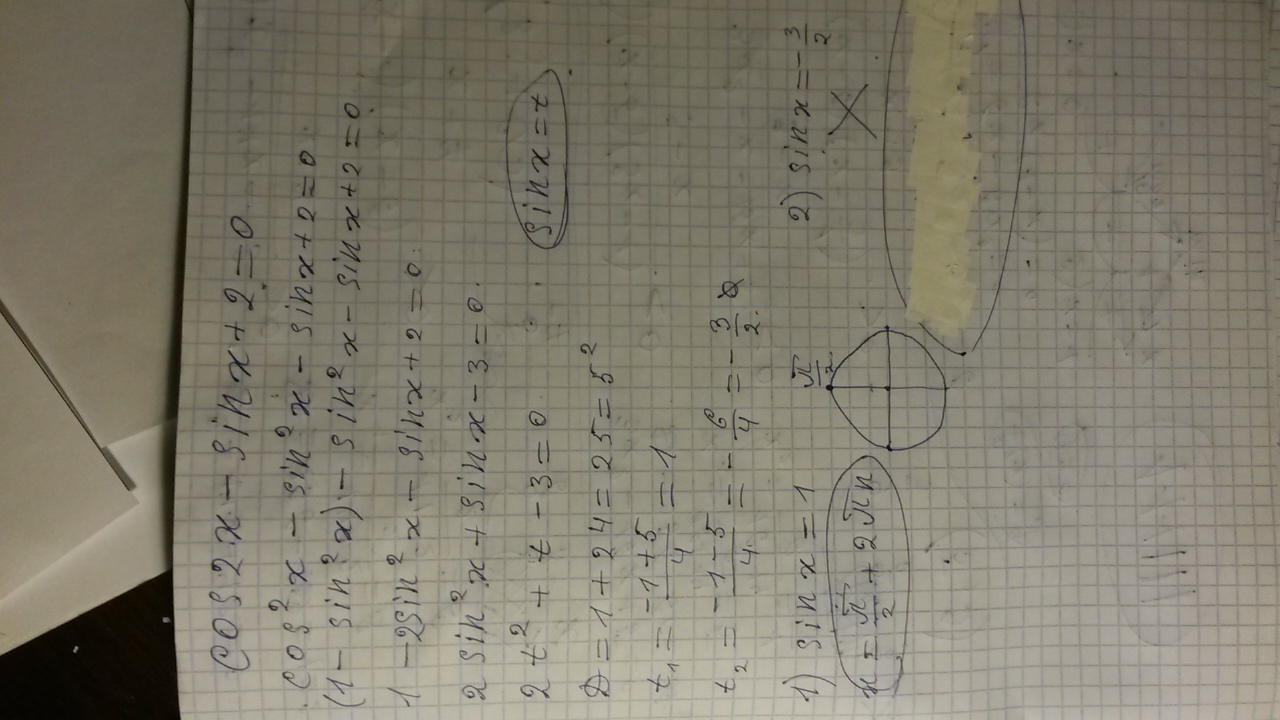 cos2x - sinx + 2 = 0
cos²x - sin²x - sinx + 2 = 0
(1 - sin²x) - sin²x - sinx + 2 = 0
1 - 2sin²x - sinx + 2 = 0
2sin²x + sinx - 3 = 0
2t² + t - 3 = 0
sinx = t
D = 1 + 24 = 25 = 5²
t₁ = (-1+5)/4 = 1
t₂ = (-1-5)/4 = -6/4 = -3/2
1) sinx = 1
2) sinx = -3/2
π/2
x = π/2 + 2πn